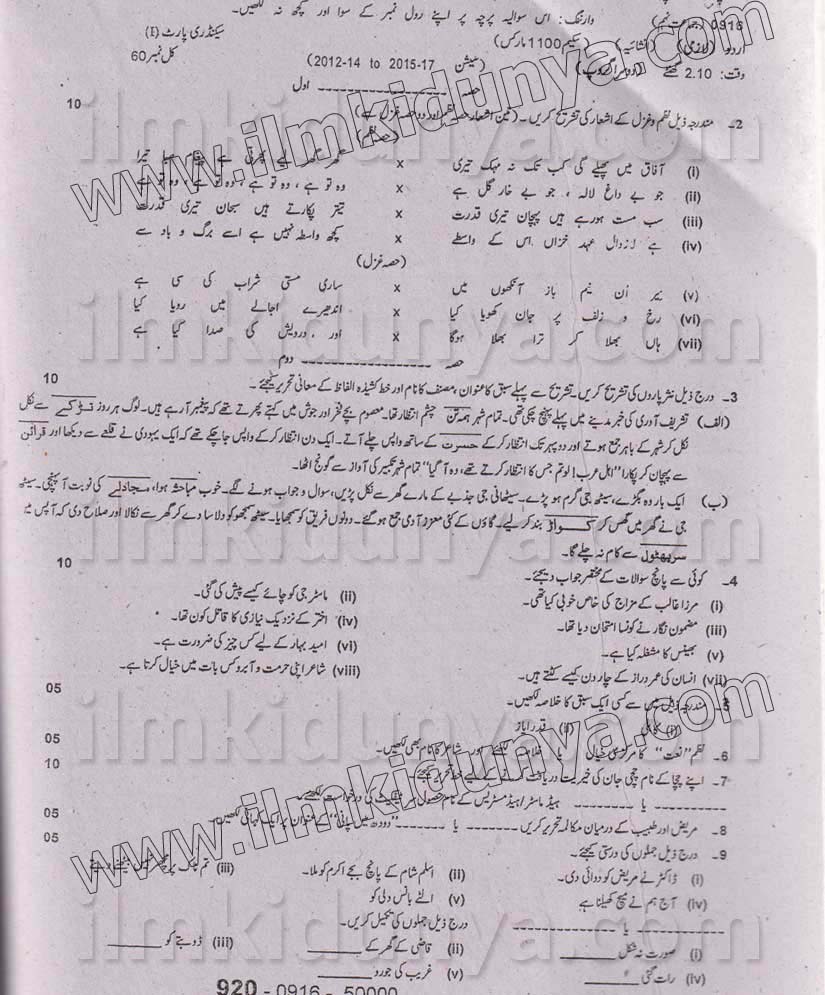 0916 وارننگ: اس سوالیہ پرچہ پر اپنے رول نمبر کے سوا اور کچھ نہ لکھیں۔
اردو (لازمی) (انشائیہ) (سکیم 1100 مارکس) سیکنڈری پارٹ (I)
وقت: 2.10 گھنٹے (دوسرا گروپ) (سیشن 2012-14 to 2015-17) کل نمبر 60
حصہ اول
2۔ مندرجہ ذیل نظم و غزل کے اشعار کی تشریح کریں۔ (تین اشعار حصہ نظم اور دو حصہ غزل سے) 10
(حصہ نظم)
(i) آفاق میں پھیلے گی کب تک نہ مہک تیری x گھر گھر لیے پھرتی ہے پیغام صبا تیرا
(ii) جو بے داغ لالہ ، جو بے خار گل ہے x وہ تو ہے ، وہ تو ہے ، وہ تو ہے ، وہ تو ہے
(iii) سب مست ہو رہے ہیں پہچان تیری قدرت x تیتر پکارتے ہیں سبحان تیری قدرت
(iv) ہے لازوال عہد خزاں اس کے واسطے x کچھ واسطہ نہیں ہے اسے برگ و بار سے
(حصہ غزل)
(v) میر ان نیم باز آنکھوں میں x ساری مستی شراب کی سی ہے
(vi) رخ و زلف پر جان کھویا کیا x اندھیرے اجالے میں رویا کیا
(vii) ہاں بھلا کر ترا بھلا ہوگا x اور درویش کی صدا کیا ہے
حصہ دوم
3۔ درج ذیل نثر پاروں کی تشریح کریں۔ تشریح سے پہلے سبق کا عنوان، مصنف کا نام اور خط کشیدہ الفاظ کے معانی تحریر کیجئے۔ 10
(الف) تشریف آوری کی خبر مدینے میں پہلے پہنچ چکی تھی۔ تمام شہر ہمہ تن چشم انتظار تھا۔ معصوم بچے فخر اور جوش میں کہتے پھرتے تھے کہ پیغمبر آ رہے ہیں۔ لوگ ہر روز تڑکے سے نکل
نکل کر شہر کے باہر جمع ہوتے اور دوپہر تک انتظار کر کے حسرت کے ساتھ واپس چلے آتے۔ ایک دن انتظار کر کے واپس جا چکے تھے کہ ایک یہودی نے قلعے سے دیکھا اور قرائن
سے پہچان کر پکارا "اہل عرب! لو تم جس کا انتظار کرتے تھے، وہ آ گیا" تمام شہر تکبیر کی آواز سے گونج اٹھا۔
(ب) ایک بار وہ بگڑے، سیٹھ جی گرم ہو پڑے۔ سیٹھانی جی جذبے کے مارے گھر سے نکل پڑیں، سوال و جواب ہونے لگے۔ خوب مباحثہ ہوا، مجادلے کی نوبت آ پہنچی۔ سیٹھ
جی نے گھر میں گھس کر کواڑ بند کر لیے۔ گاؤں کے کئی معزز آدمی جمع ہو گئے۔ دونوں فریق کو سمجھایا۔ سیٹھ سمجھو کو دلاسا دے کر گھر سے نکالا اور صلاح دی کہ آپس میں
سر پھٹول سے کام نہ چلے گا۔
4۔ کوئی سے پانچ سوالات کے مختصر جواب دیجئے۔ 10
(i) مرزا غالب کے مزاج کی خاص خوبی کیا تھی۔ (ii) ماسٹر جی کو چائے کیسے پیش کی گئی۔
(iii) مضمون نگار نے کونسا امتحان دیا تھا۔ (iv) اختر کے نزدیک نیازی کا قاتل کون تھا۔
(v) بھینس کا مشغلہ کیا ہے۔ (vi) امید بہار کے لیے کس چیز کی ضرورت ہے۔
(vii) انسان کی عمر دراز کے چار دن کیسے کٹتے ہیں۔ (viii) شاعر اپنی حرمت و آبرو کس بات میں خیال کرتا ہے۔
5۔ مندرجہ ذیل میں سے کسی ایک سبق کا خلاصہ لکھیں۔ 05
(i) کاہلی (ii) قدر ایاز
6۔ نظم "نعت" کا مرکزی خیال یا خلاصہ لکھئے اور شاعر کا نام بھی لکھیں۔ 05
7۔ اپنے چچا کے نام چچی جان کی خیریت دریافت کرنے کے لیے خط تحریر کیجئے 10
یا ہیڈ ماسٹر/ہیڈ مسٹریس کے نام حصول سرٹیفکیٹ کی درخواست لکھیں۔
8۔ مریض اور طبیب کے درمیان مکالمہ تحریر کریں یا "دودھ میں پانی" کے عنوان پر ایک کہانی لکھیں۔ 05
9۔ درج ذیل جملوں کی درستی کیجئے۔ 05
(i) ڈاکٹر نے مریض کو دوائی دی۔ (ii) اسلم شام کے پانچ بجے اکرم کو ملا۔ (iii) تم
(iv) آج ہم نے میچ کھیلنا ہے (v) الٹے بانس دلی کو
یا درج ذیل جملوں کی تکمیل کریں۔
(i) صورت نہ شکل ______ (ii) قاضی کے گھر کے ______ (iii) ڈوبتے کو ______
(iv) رات گئی ______ (v) غریب کی جورو ______
920 - 0916 - 50000
www.ilmkidunya.com
ilmkidunya.com
www.ilmkidunya.com